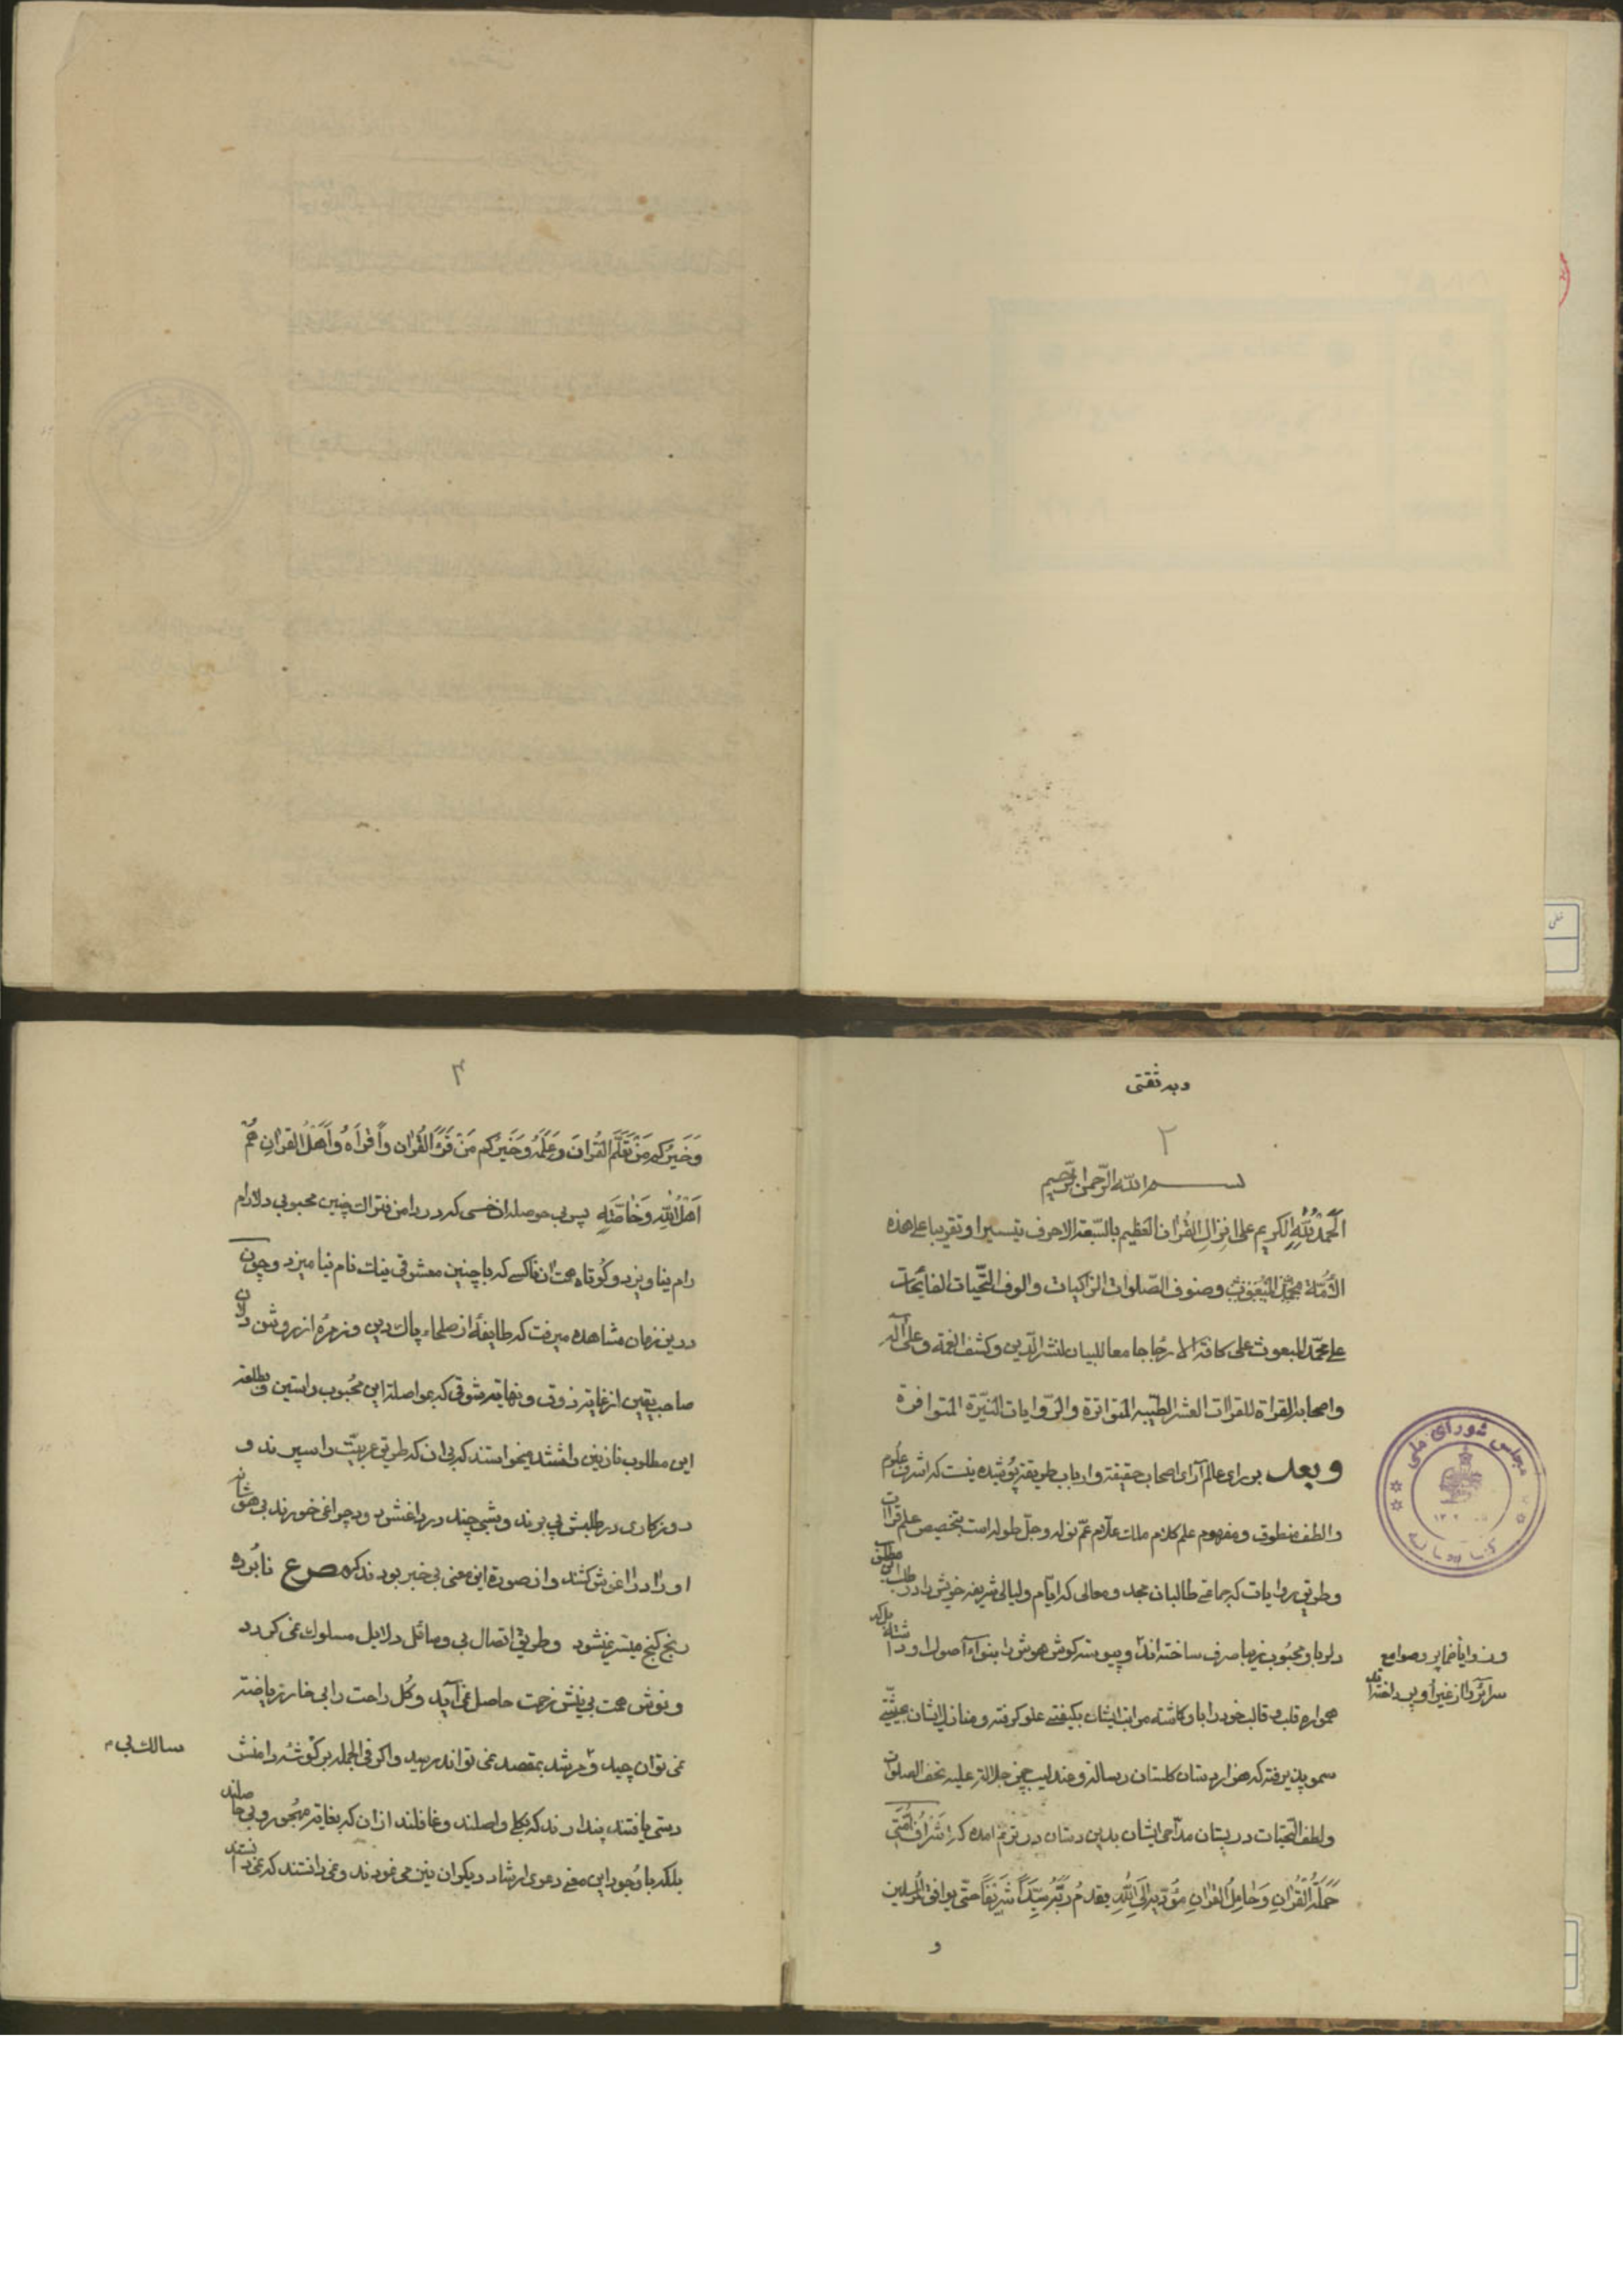 وبه ثقتی
۲
بسم الله الرحمن الرحیم
الحمد لله الکریم علی انزال القران العظیم بالسبعة الاحرف تیسیرا و تقریبا علی هذه
الامة وصنوف الصلوات الزاکیات والوف التحیات الفایحات
علی محمد المبعوث علی کافة جامعا للبیان لنشر الدین وکشف الغمه وعلی آله
واصحابه القراة للقراآت العشر الطیبه المتواترة والروایات النیرة المتوافرة
وبعد بر رای عالم آرای اصحاب حقیقة وارباب طریقة پوشیده نیست که اشرف علوم
والطف منطوق ومفهوم علم کلام ملک علام عم نواله وجل طوله است بتخصیص علم قراات
وطریق روایات که جماعتی طالبان مجد ومعالی که ایام ولیالی شریفه خویش را در طلب این مطلق
دلربا ومحبوب زیبا صرف ساخته اند وپیوسته کوش هوش را بنواء اصول او داشته بل که
وزوایا خمایر وصوامع
سرائر را از غیر او پرداخته اند
همواره قلب و قالب خود را باو کاشته مراتب ایشان بکیفیتی علو کرفته ومنازل ایشان بحیثیتی
سمو پذیرفته که هزار دستان کلستان رسالة وعندلیب چمن جلالة علیه تحف الصلوات
ولطف التحیات در بستان مداحی ایشان بدین دستان در ترنم امده که اشراف امتی
حملة القران وحامل القران یقدم ربه سیدا شریفا حتی یوافق المرسلین
و
مجلس شورای ملی
کتابخانه
۳
وخیرکم من تعلم القران وعلمه وخیرکم من قرء القران واقراه واهل القران هم
اهل الله وخاصته پس بی حوصله ان خسی که در دامن فتراک چنین محبوبی دلارام
رام نیاویزد وکوتاه همت ان ناکسی که با چنین معشوقی نیک نام نیامیزد وچون
درین زمان مشاهده میرفت که طایفهٔ از صلحاء پاک دین وزمرهٔ از روشن دلان
صاحب یقین از غایة ذوق ونهایة شوقی که بمواصلة این محبوب راستین ومطلعه
این مطلوب نازنین داشتند میخواستند که بی ان که طریق عربیت را سپرند و
روزکاری در طلبش پی برند وشبی چند در دماغش دود چراغی خورند بی هوشانه
او را در اغوش کشند واز صورة این معنی بی خبر بودند که مصرع نابرده
رنج کنج میسر نمیشود وطریق اتصال بی وسائل دلایل مسلوک نمی کردد
ونوش صحت بی نیش زحمت حاصل نمی آید وکل راحت را بی خار ریاضة
نمی توان چید و مرشد بمقصد نمی تواند رسید واکر فی الجمله بر کوشه دامنش
سالک بی
دستی یافتند پندارند که بکلی واصلند وغافلند ازان که بغایة مهجور وبی حاصلند
بلکه با وجود این معنی دعوی ارشاد دیکران نیز می نمودند ونمی دانستند که نمی دانستند